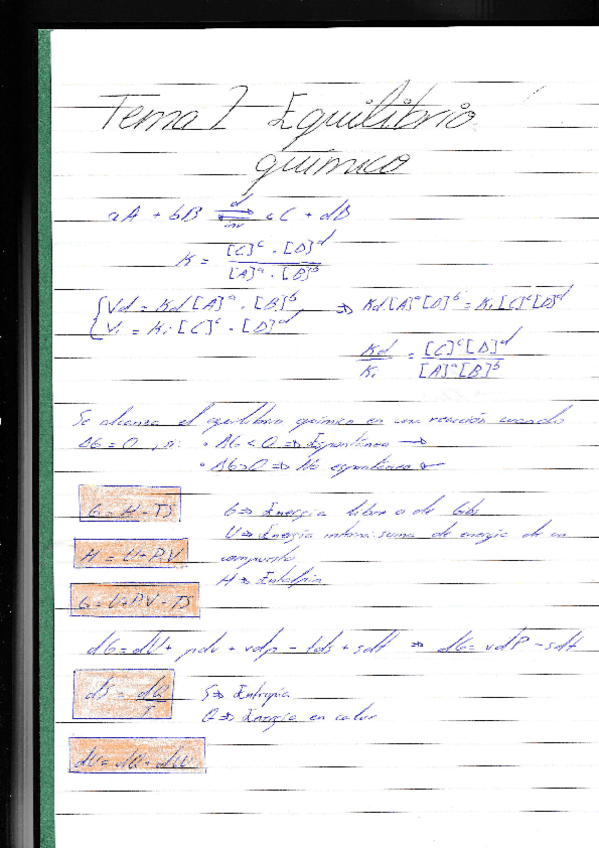 Tema 2 Equilibrio
químico
aA + bB ⇌ cC + dB
d
inv
K = [C]^c · [D]^d / [A]^a · [B]^b
{ Vd = Kd [A]^a · [B]^b ⇒ Kd·[A]^a [B]^b = Ki [C]^c [D]^d
Vi = Ki · [C]^c · [D]^d
Kd / Ki = [C]^c [D]^d / [A]^a [B]^b
Se alcanza el equilibrio químico en una reacción cuando
ΔG = 0, si: • ΔG < 0 ⇒ Espontánea →
• ΔG > 0 ⇒ No espontánea ←
G = H - TS G ⇒ Energía libre o de Gibs
U ⇒ Energía interna: suma de energía de un
H = U + PV compuesto
H ⇒ Entalpía
G = U + PV - TS
dG = dU + pdv + vdp - Tds + sdt ⇒ dG = vdP - sdt
dS = dQ / T S ⇒ Entropía
Q ⇒ Energía en calor
dU = dQ - dW